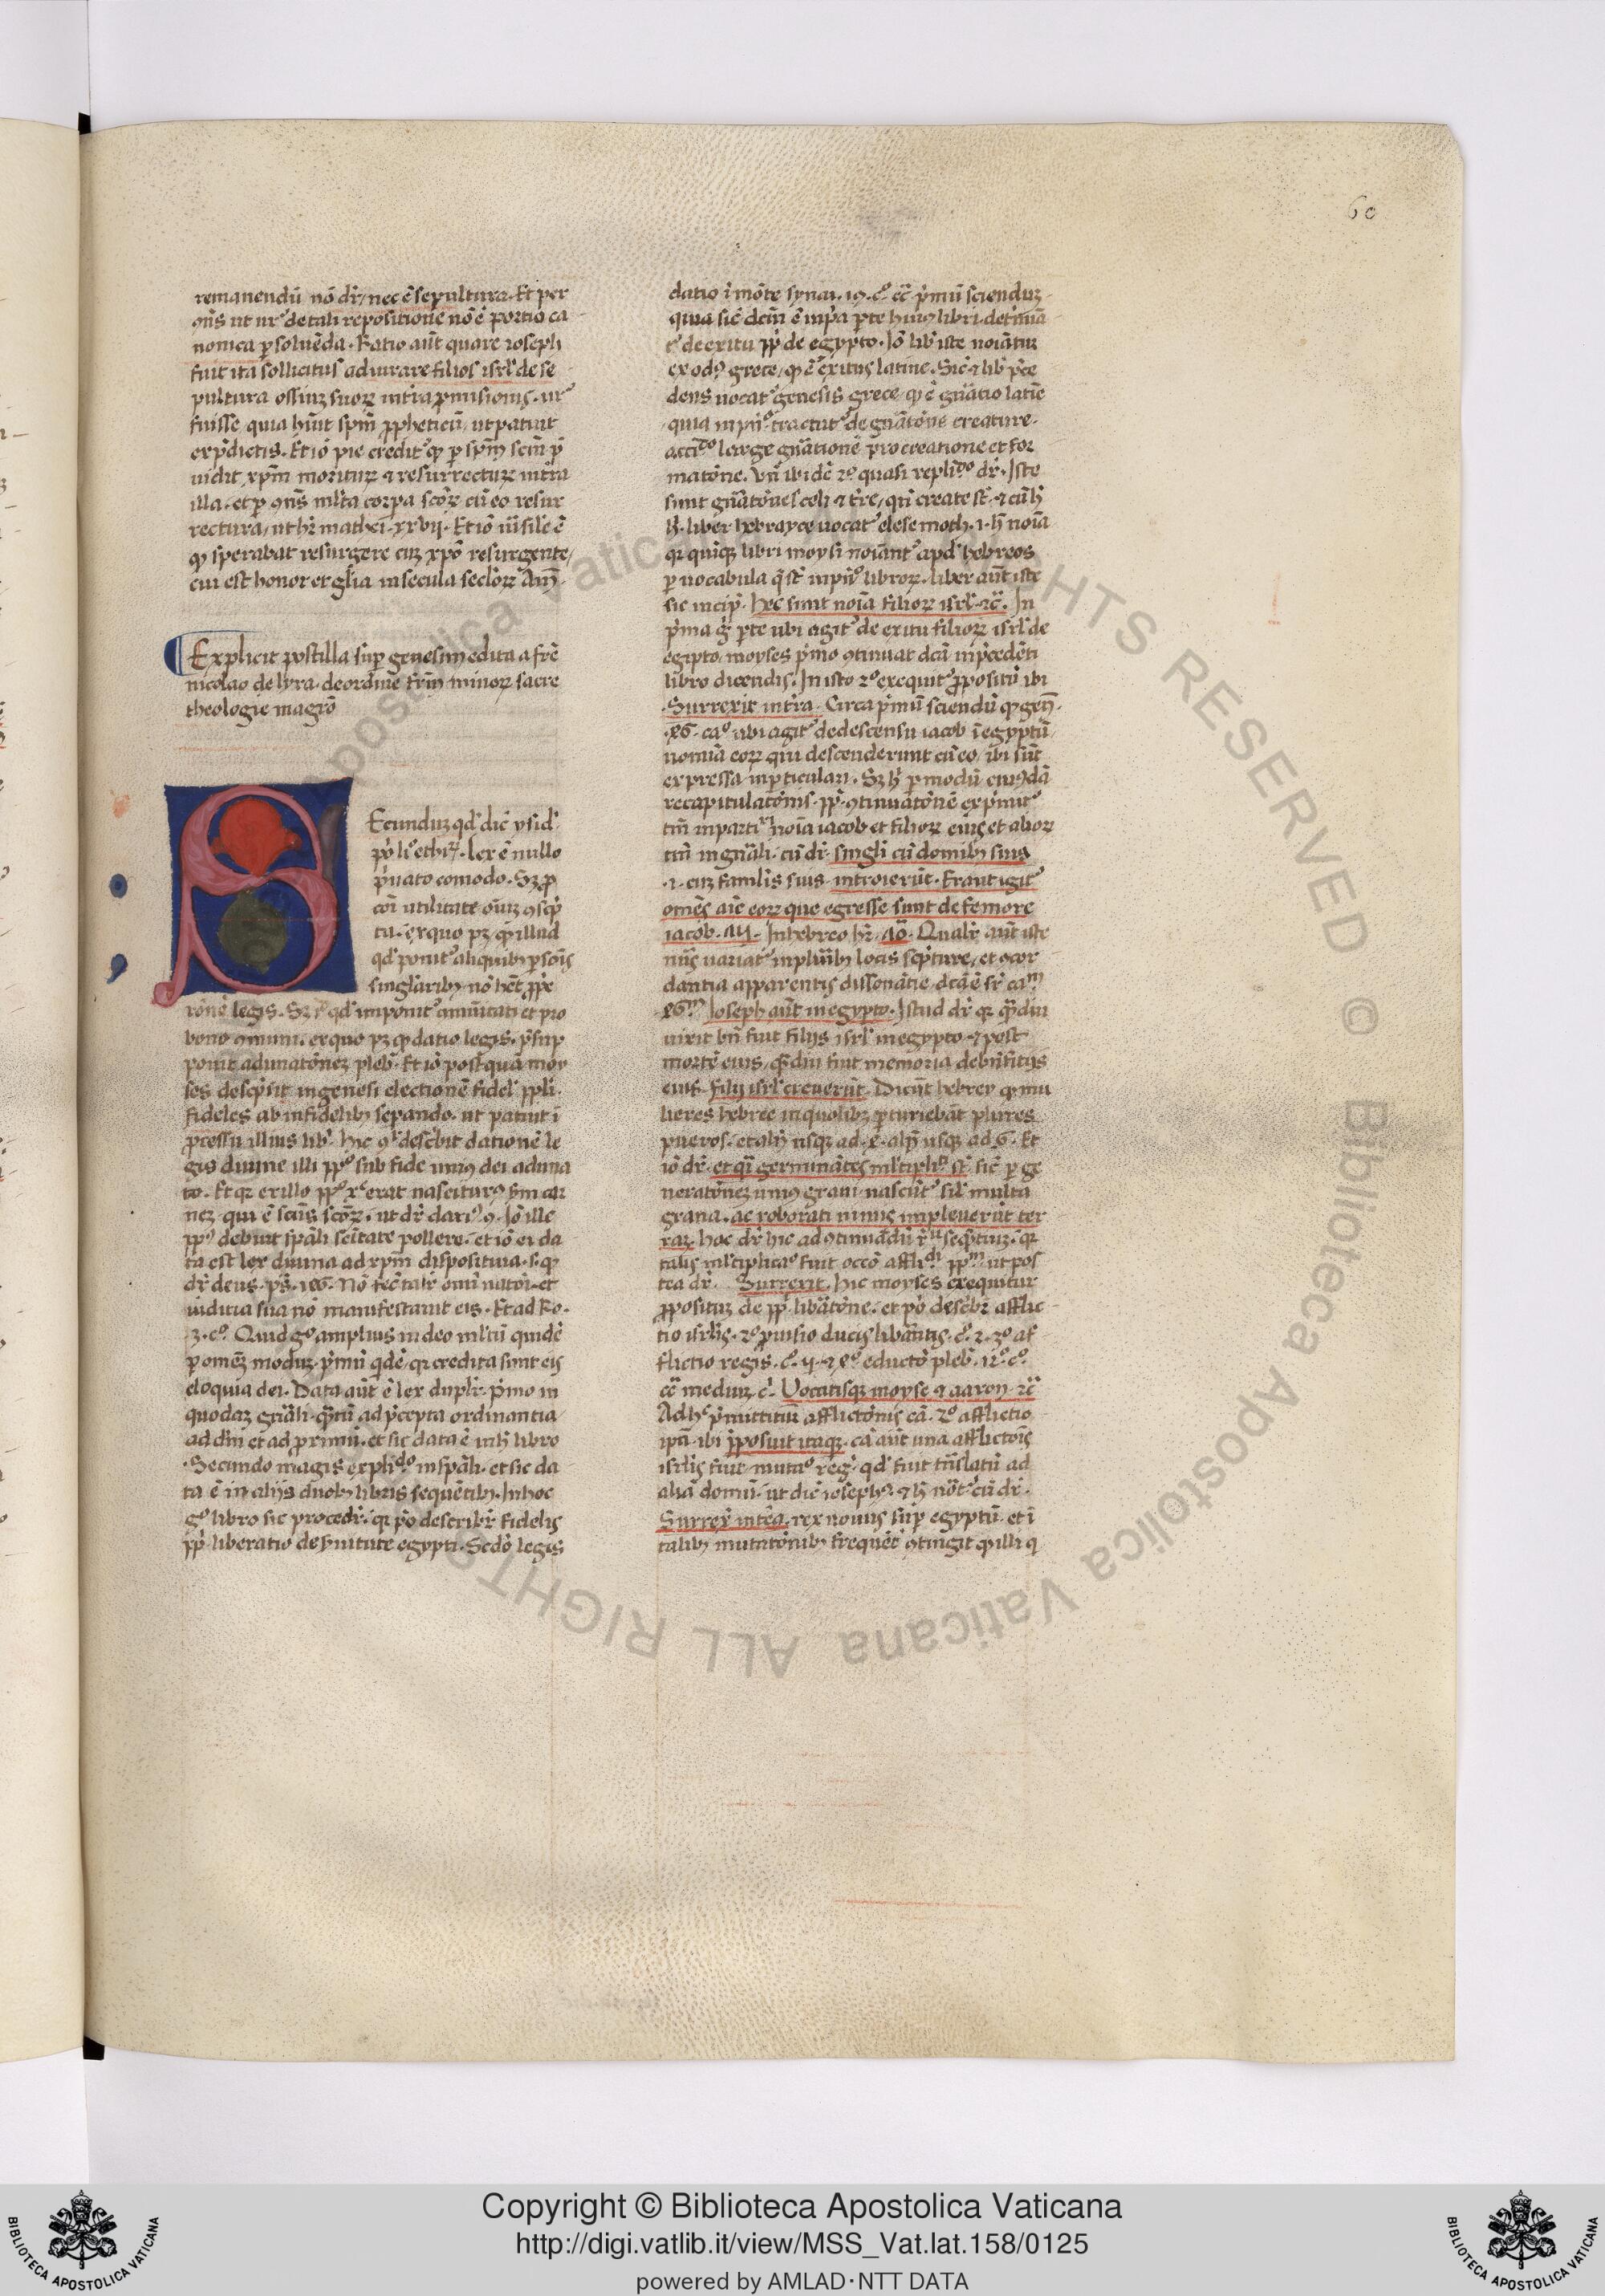 60
remanendū nō dr̄ nec ē sepultura. Et per
ꝯñs ut ur̄ de tali repositione nō ē portio ca
nonica ꝑsoluēda. Ratio aūt quare ioseph
fuit ita sollicitus adiurare filios isrl̄ de se
pultura ossiuꝫ suoꝝ in tr̄a ꝓmissionis. ur̄
fuisse quia h̄uit spm̄ ꝓpheticū, ut patuit
ex p̄dictis. Et iō pie credit̄ ꝙ ꝑ spm̄ scm̄ p̄
uidit xp̄m moriturꝝ ⁊ resurrecturꝝ in tr̄a
illa. et ꝑ ꝯñs ml̄ta corpa scōꝝ cū eo resur
rectura, ut hr̄ mathei. xxvij. Et iō
ꝙ sperabat resurgere cuꝫ xpō resurgente,
cui est honor et gl̄ia in secula secl̄oꝝ Am̄
Explicit postilla sup̄ genesim edita a fr̄e
nicolao de lyra. de ordine fr̄m minoꝝ sacre
theologie magr̄o
Secunduꝫ qd̄ dic̄ ysid̄
li° ethiꝝ. lex ē nullo
p̄uato comodo. Sꝫ ꝓ
cōi utilitate ciuiuꝫ ꝯscp̄
ta. ex quo pꝫ ꝙ illud
qd̄ ponit̄ aliquibꝫ ꝑsoīs
singl̄aribꝫ nō hēt ꝓpe
rōnē legis. Sꝫ qd̄ imponit̄ cōmūitati et pro
bono ꝯmuni. ex quo pꝫ ꝙ datio legis. p̄sup
ponit adunatōneꝫ pleb̄. Et iō postquā moy
ses descp̄sit in genesi electionē fidel̄ ppl̄i.
fideles ab infidelibꝫ sepando. ut patuit ī
ꝓcessu illius lib̄. hic descb̄it dationē le
gis diuine illi pp̄° sub fide uniꝰ dei aduna
to. Et qꝛ ex illo pp̄° xc̄ erat nasciturꝰ scd̄m car
neꝫ. qui ē scūs scōꝝ. ut dr̄ . 9. Iō ille
pp̄s debuit sp̄ali scītate pollere. et iō ei da
ta est lex diuina ad xp̄m dispositiua.
dr̄ deus. ps̄. 146. Nō fec̄ talit̄ omī natōi. et
iudicia sua nō manifestauit eis. Et ad Ro.
3. c°. Quid g° amplius iudeo ml̄tū quidē
ꝑ omēꝫ moduꝫ. p̄mū qdē. qꝛ credita sunt eis
eloquia dei. Data aūt ē lex duplr̄. p̄mo in
quodaꝫ gn̄ali. q̄tū ad p̄cepta ordinantia
ad dm̄ et ad primū. et sic data ē in h̄ libro
Secundo magis expli.do in sp̄ali. et sic da
ta ē in alijs duobꝫ libris sequētibꝫ. In hoc
g° libro sic procedr̄. qꝛ p°o describr̄ fidelis
pp̄l̄i liberatio de s̄uitute egypti. Scdō legis
datio ī mōte synai. 19. c°. p̄mū sciendꝫ
quia sic̄ dcm̄ ē in p̄a ꝑte huiꝰ libri. det̄mia
t̄ de exitu pp̄l̄i de egypto. Iō lib̄ iste noīat̄ur
exodꝰ grece, ꝙ ē exitus latine. Sic̄ ⁊ lib̄ p̄ce
dens uocat̄ genesis grece, ꝙ ē gn̄atio latīe
quia in pn̄° tractat̄ de gn̄atōne creature.
acci.do large gn̄ationē pro creatione et for
matōne. Vn̄ ibidē 2°. quasi repli.do dr̄. Iste
sunt gn̄atōnes celi ⁊ t̄re, qn̄ create st̄. ⁊ cū
liber hebrayce uocat̄ elesemoth. i. h̄ noīa
qꝛ quīqꝫ libri moysi noīant̄ apd̄ hebreos
ꝑ uocabula q̄ st̄ in pn̄° libroꝝ. liber aūt iste
sic incip̄. hec sunt noīa filioꝝ isrl̄ ⁊c̄. In
p̄ma g° ꝑte ubi agit̄ de exitu filioꝝ isrl̄ de
egipto, moyses p̄mo ꝯtinuat dc̄a in p̄cedēti
libro dicendis. In isto 2° exequit̄ ꝓpositū ibi
Surrexit int̄ia. Circa p̄mū sciendū ꝙ gen̄.
46. ca°. ubi agit̄ de descensu iacob ī egyptū,
nomīa eoꝝ qui descenderunt cū eo, ibi sūt
expressa in ꝑticulari. Sꝫ h̄ ꝑ modū cuiꝰdā
recapitulatōnis. ꝯtinuatōnē exp̄mit̄
tm̄ in parti.ri noīa iacob et filioꝝ eius et alioꝝ
tm̄ in gn̄ali. cū dr̄. singl̄i cū domibꝫ suis
.i. cuꝫ familīs suis. introierūt. Erant igit̄
omēs aīe eoꝝ que egresse sunt de femore
iacob. In hebreo hr̄. 70. Qualr̄ aūt iste
nūs uariat̄ in pluribꝫ locis sc̄pture, et ꝯcor
dantia apparentis dissonātie, dcā ē sr̄ ca.m
46.m Ioseph aūt in egypto. Istud dr̄ qꝛ q̄diu
uixit bn̄ fuit filijs isrl̄ in egypto. ⁊ post
mortē eius, q̄diu fuit memoria debn̄ficijs
eius. Filij isrl̄ creuerūt. Dicūt hebrey ꝙ mu
lieres hebree in quolibꝫ ꝑturiebāt plures
pueros. et alij usqꝫ ad. 4. alij usqꝫ ad 6. Et
iō dr̄. et q̄i germinātes ml̄tiplīti st̄. sic̄ ꝑ ge
neratōneꝫ uniꝰ grani nascūt̄ sil̄ multa
grana. ac roborati nimis impleuerūt ter
raꝫ. hoc dr̄ hic ad ꝯtinuādū seq̄ntiuꝫ. qꝛ
talis ml̄tiplicaō fuit occō affli.di pp̄m. ut pos
tea dr̄. Surrexit. hic moyses exequitur
ꝓpositꝫ de pp̄l̄i lib̄atōne. et p°o descb̄r̄ afflic
tio isrl̄is. 2° ꝓuisio ducis lib̄antis. c°. 2. 3° af
flictio regis. c°. 7. ⁊ 4° eductō pleb̄. 12.° c°.
mediuꝫ. c̄. Vocatisqꝫ moyse ⁊ aaron. ⁊c̄
Ad h° p̄mittitur afflictōnis cā. 2° afflictio
ipā. ibi p̄posuit itaqꝫ. cā aūt una afflictōis
isrl̄is fuit mutaō regꝰ. qd̄ fuit tn̄slatū ad
aliā domū. ut dic̄ iosephꝰ. ⁊ h̄ nōt̄ cū dr̄.
Surrex̄ int̄ea. rex nouus sup̄ egyptū. et ī
talibꝫ mutatōnibꝫ frequēt̄ ꝯtingit ꝙ illi q
Copyright © Biblioteca Apostolica Vaticana
http://digi.vatlib.it/view/MSS_Vat.lat.158/0125
powered by AMLAD·NTT DATA